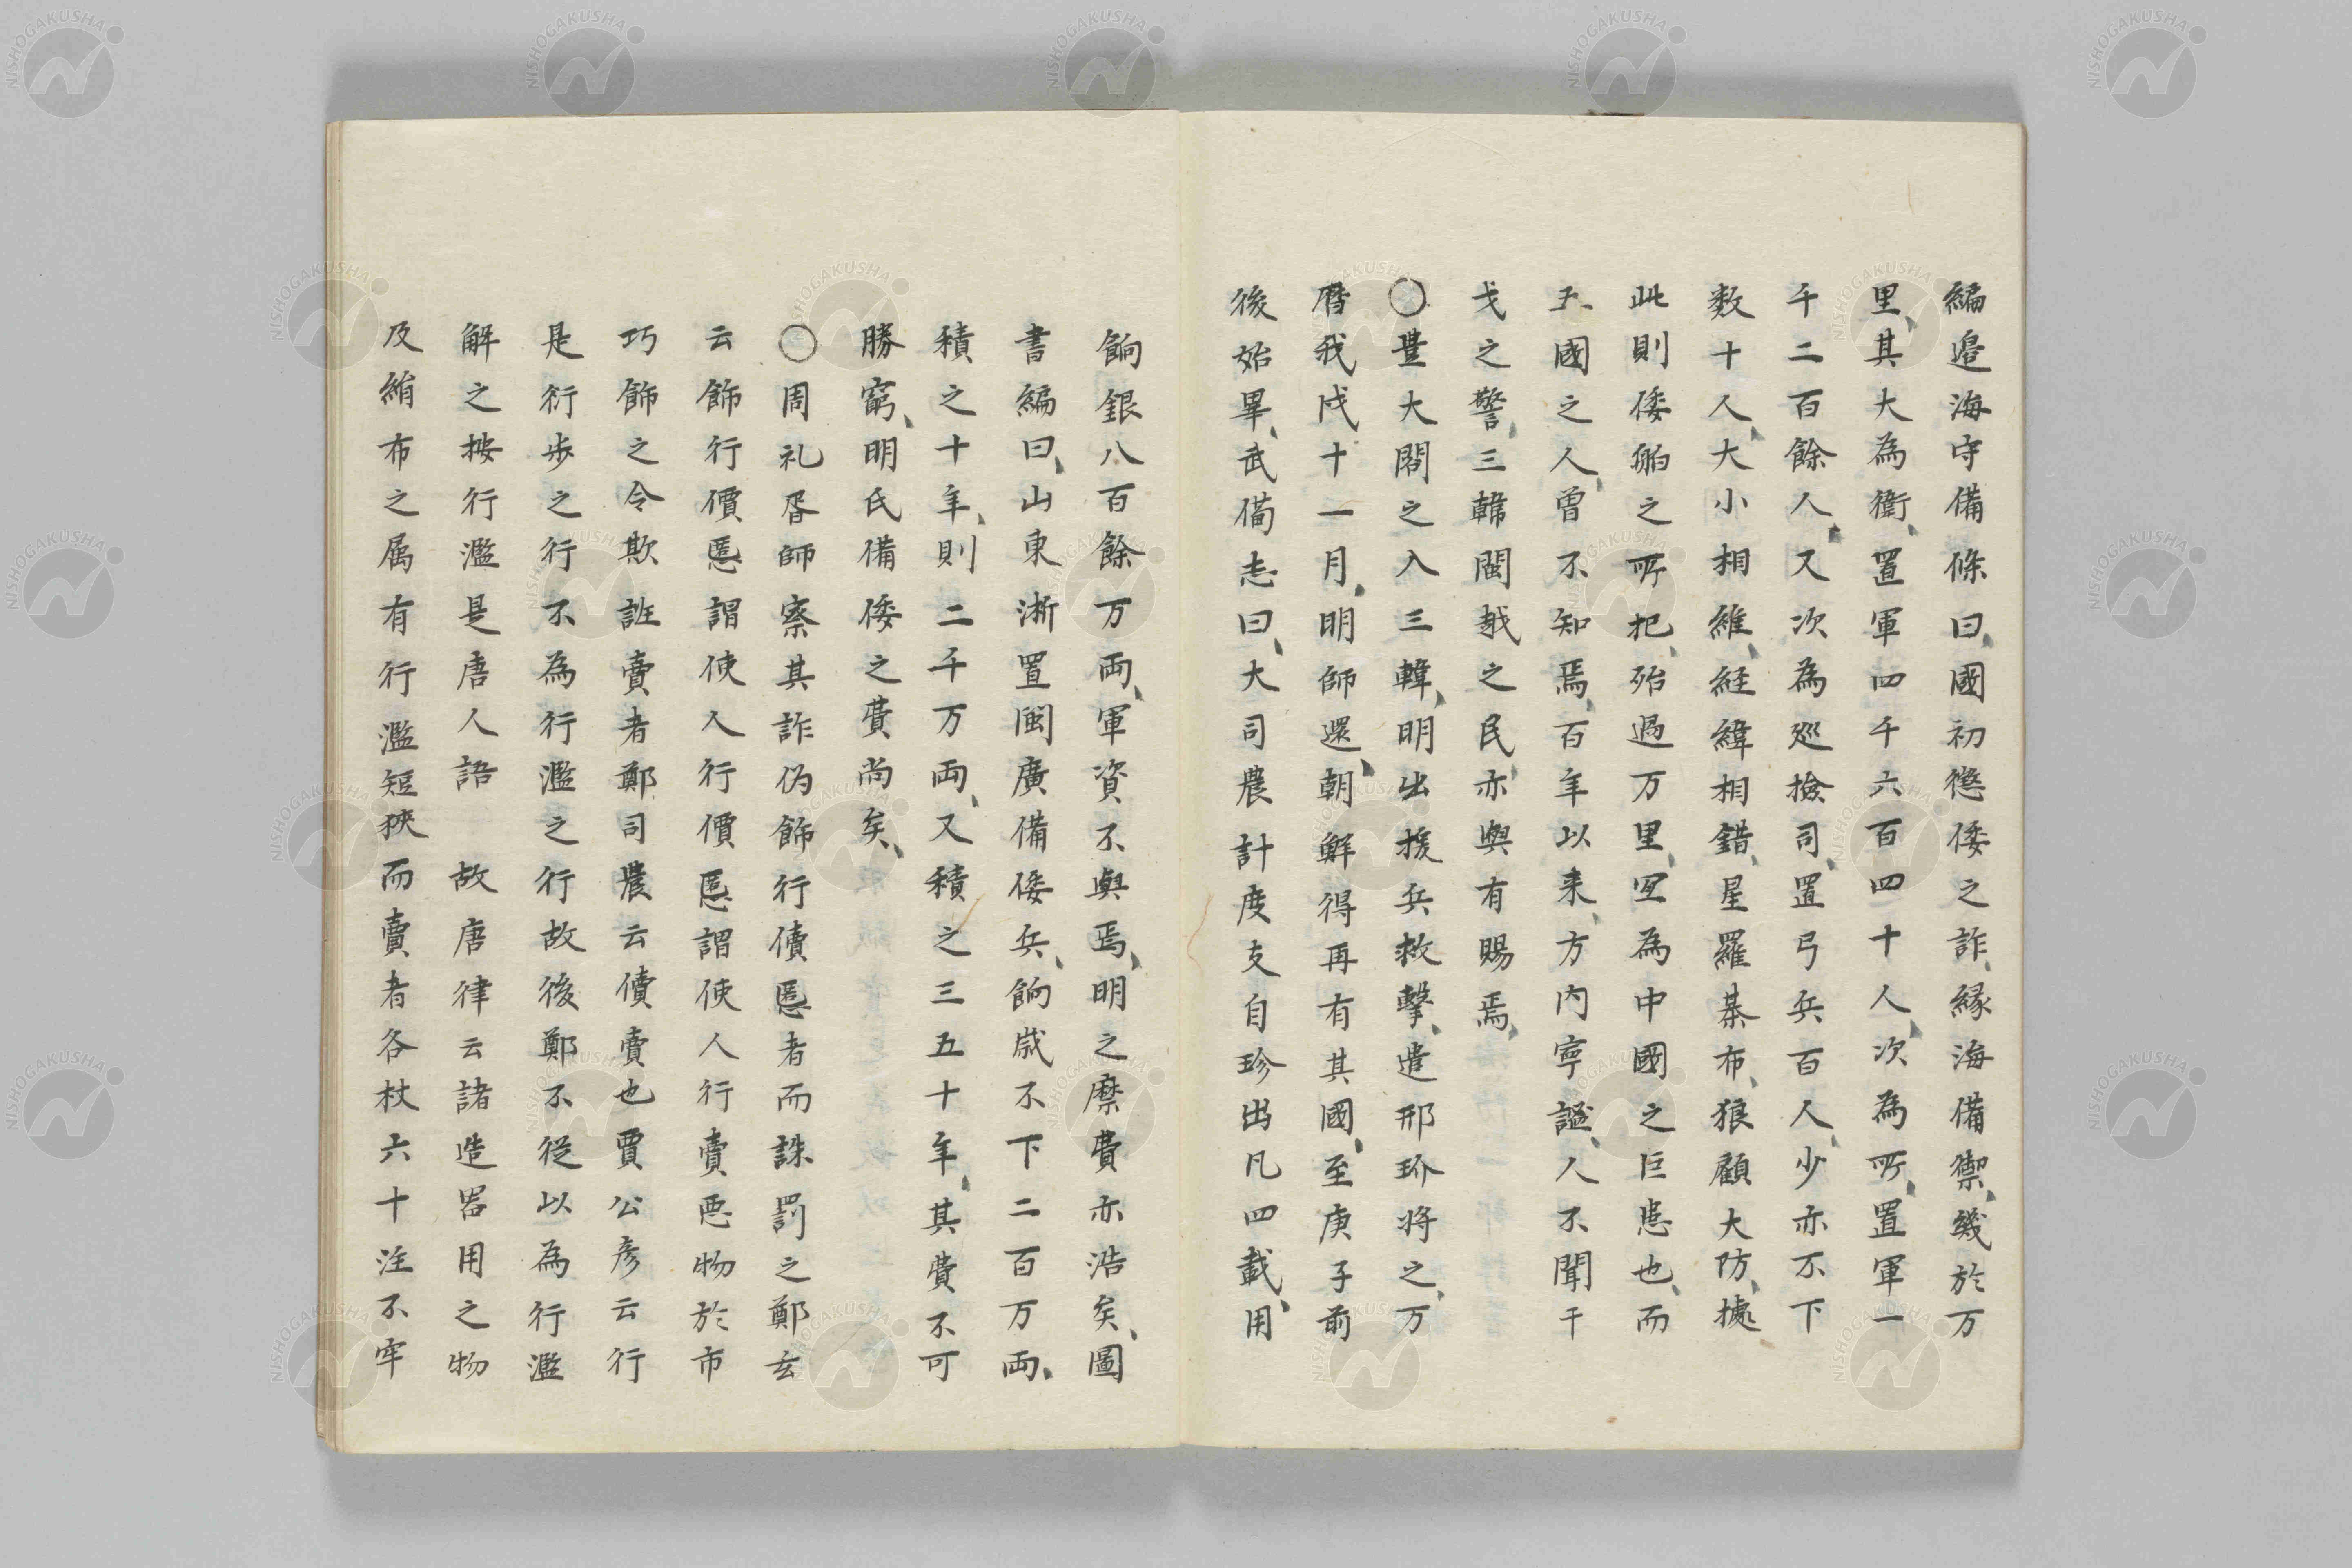 編邉海守備條曰、國初懲倭之詐、縁海備禦、幾於万
里、其大為衞、置軍四千六百四十人、次為所、置軍一
千二百餘人、又次為廵撿司、置弓兵百人、少亦不下
数十人、大小相維、経緯相錯、星羅棊布、狼顧大防、據
此則倭舶之所犯、殆過万里、冝為中國之巨患也、而
五國之人、曽不知焉、百年以来、方内寧謐、人不聞干
戈之警、三韓閩越之民、亦與有賜焉、
〇豊大閤之入三韓、明出援兵救撃、遣邢玠将之、万
暦我戊十一月、明師還、朝鮮得再有其國、至庚子前
後始畢、武備志曰、大司農計度支自珍出凡四載、用
餉銀八百餘万両、軍資不與焉、明之縻費亦浩矣、圖
書編曰、山東淅置閩廣備倭兵、餉歳不下二百万両、
積之十年、則二千万両、又積之三五十年、其費不可
勝窮、明氏備倭之費尚矣、
〇周礼胥師察其詐伪飾行儥慝者而誅罰之鄭玄
云飾行價慝謂使人行價慝謂使人行賣悪物於市
巧飾之令欺誑賣者鄭司農云儥賣也賈公彦云行
是行歩之行不為行濫之行故後鄭不従以為行濫
解之按行濫是唐人語 故唐律云諸造噐用之物
及絹布之属有行濫短狭而賣者各杖六十注不牢